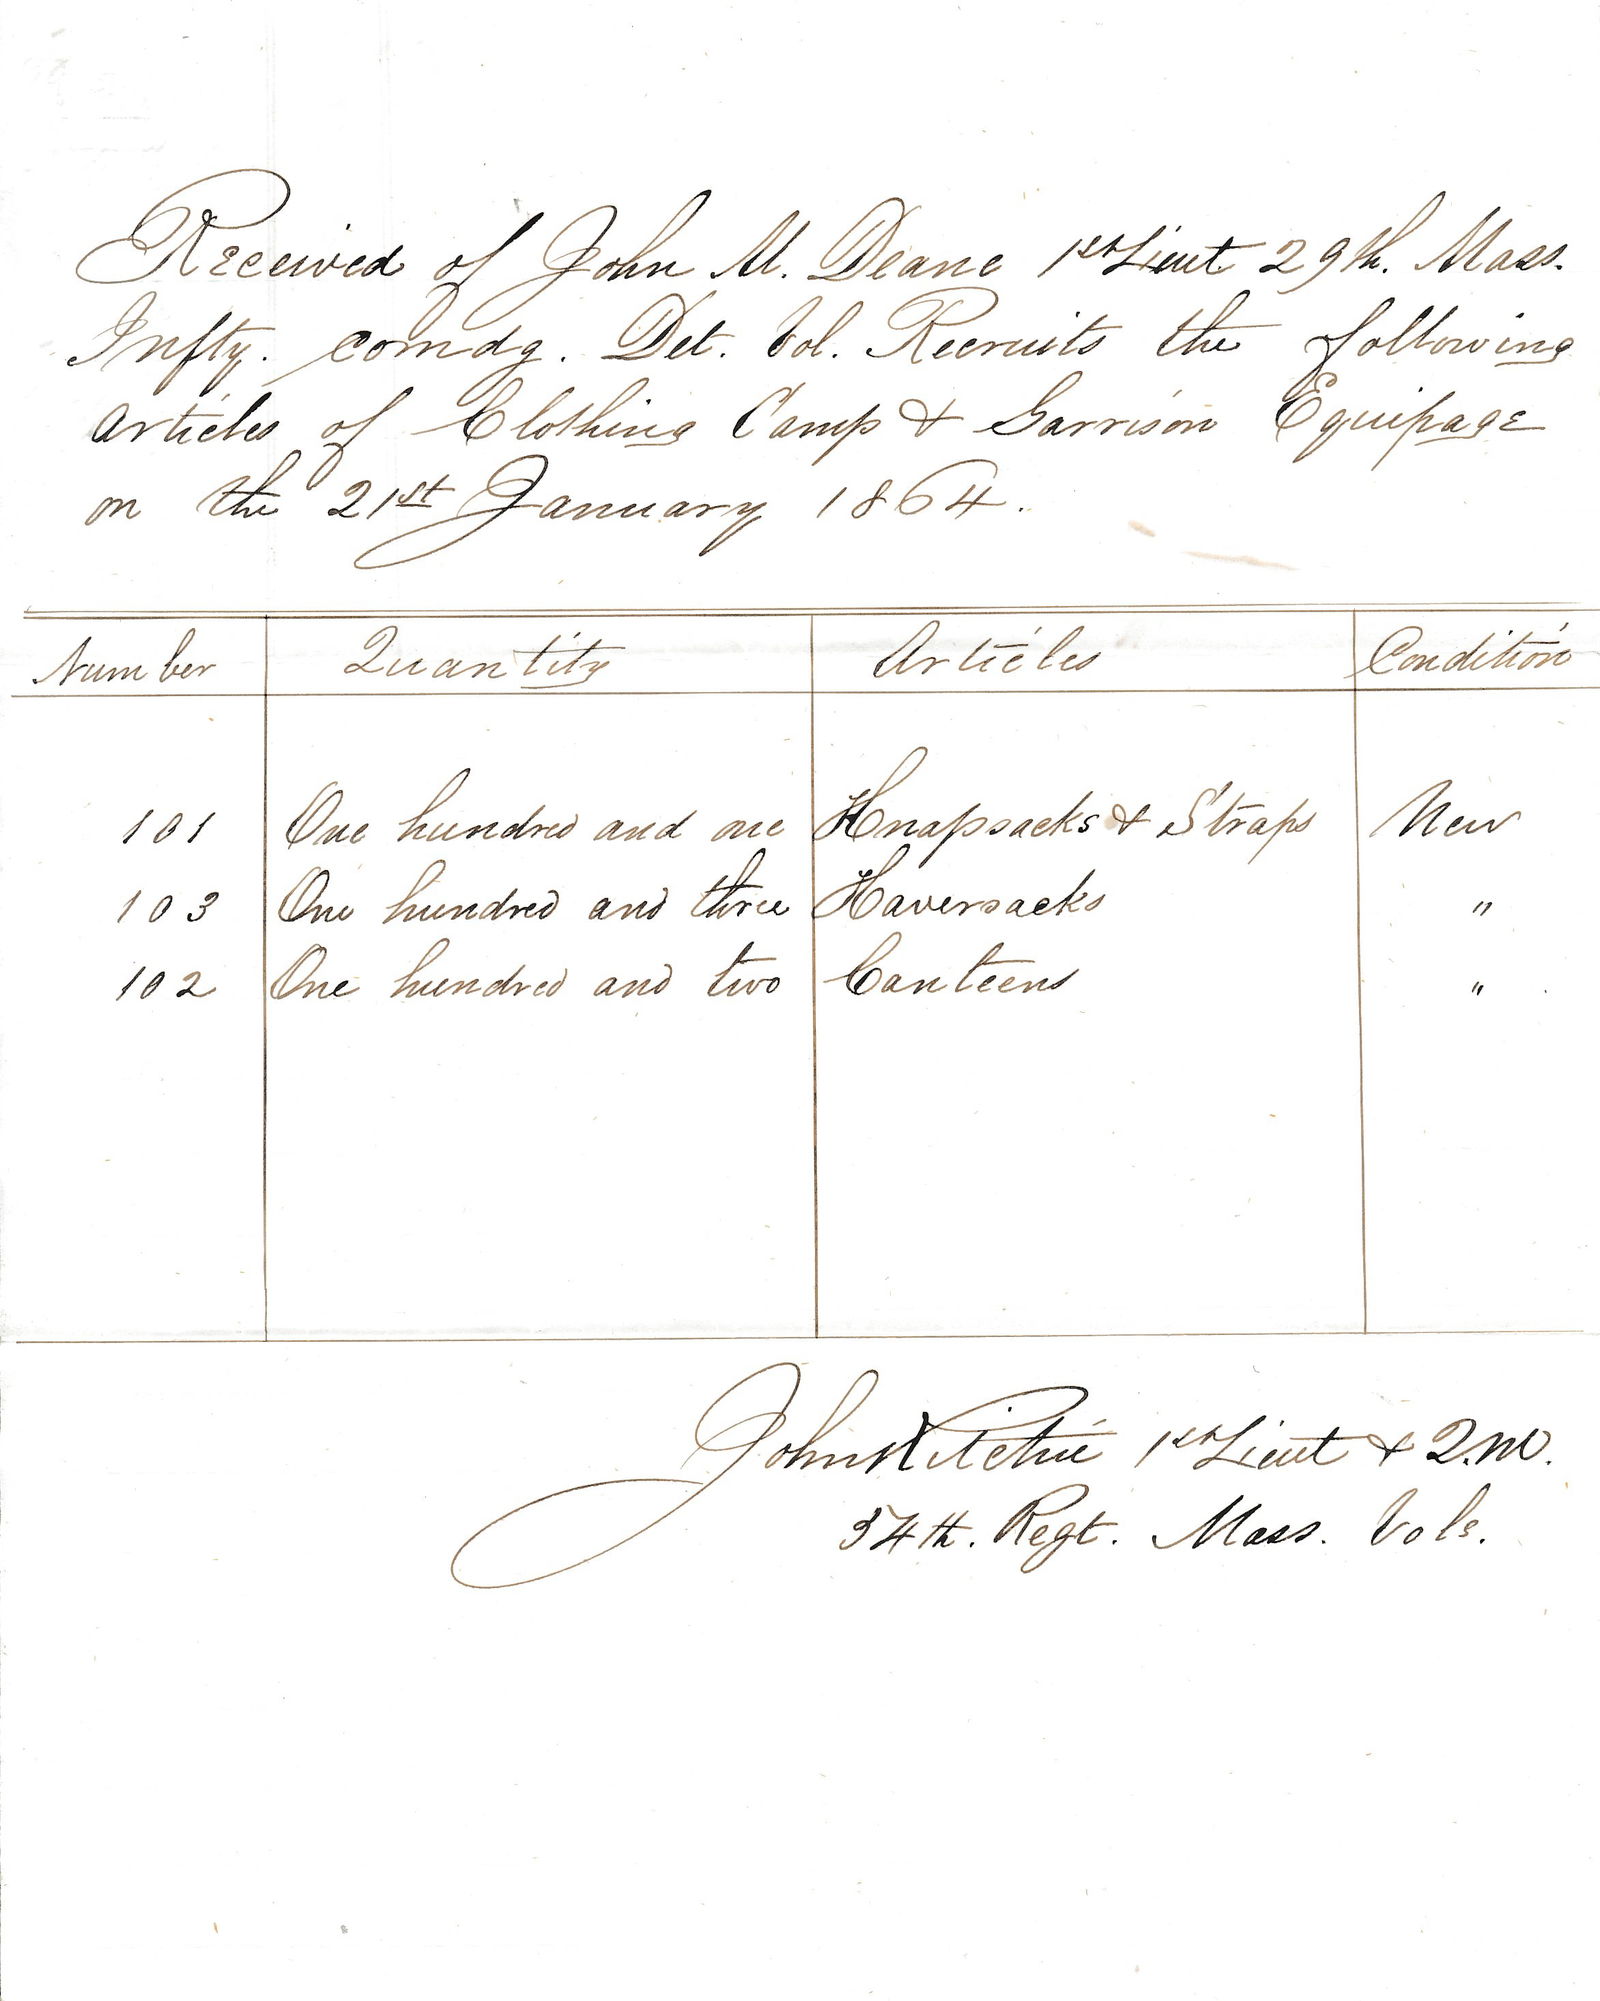 Received of John M. Deane 1st Lieut 29th. Mass.
Infty. comdg. Det. Vol. Recruits the following
articles of Clothing Camp & Garrison Equipage
on the 21st January 1864.
Number Quantity Articles Condition
101 One hundred and one Knapsacks & Straps New
103 One hundred and three Haversacks "
102 One hundred and two Canteens "
John Ritchie 1st Lieut & Q.M.
54th. Regt. Mass. Vols.